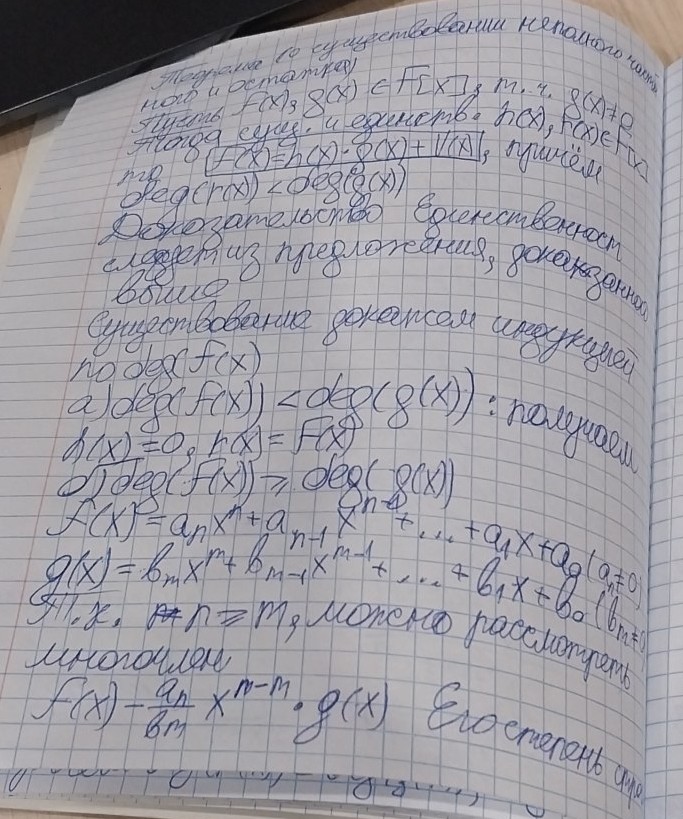 Теорема (о существовании неполного частного
и остатка)
Пусть f(x), g(x) ∈ F[x], т.ч. g(x)≠0
Тогда сущ. и единств. h(x), r(x) ∈ F[x]
что f(x)=h(x)·g(x)+r(x), причём
deg(r(x)) < deg(g(x))
Доказательство Единственност
следует из предложения, доказанно
выше
Существование докажем индукцией
по deg(f(x)
а) deg(f(x)) < deg(g(x)): получаем
h(x)=0, r(x)=f(x)
б) deg(f(x)) ⩾ deg(g(x))
f(x)=aₙxⁿ+aₙ₋₁xⁿ⁻¹+...+a₁x+a₀ (aₙ≠0)
g(x)=bₘxᵐ+bₘ₋₁xᵐ⁻¹+...+b₁x+b₀ (bₘ≠0)
Т.к. n⩾m, можно рассмотреть
многочлен
f(x) - aₙ/bₘ xⁿ⁻ᵐ·g(x) Его степень